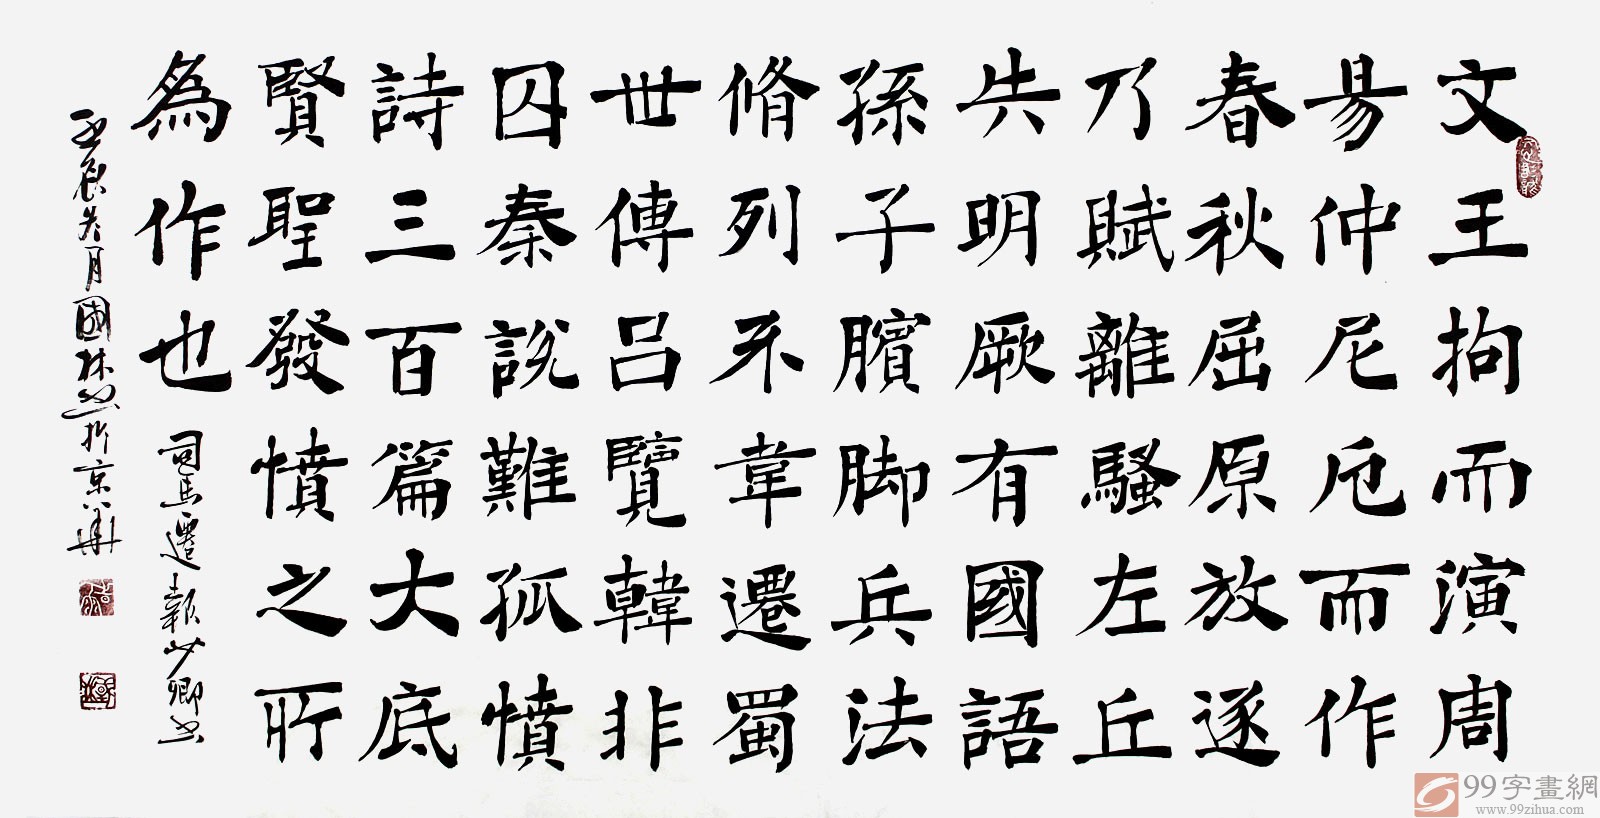 文王拘而演周
易仲尼厄而作
春秋屈原放逐
乃賦離騷左丘
失明厥有國語
孫子臏脚兵法
脩列不韋遷蜀
世傳吕覽韓非
囚秦說難孤憤
詩三百篇大底
賢聖發憤之所
為作也
司馬遷報少卿書
國林書於京華
99字畫網
www.99zihua.com